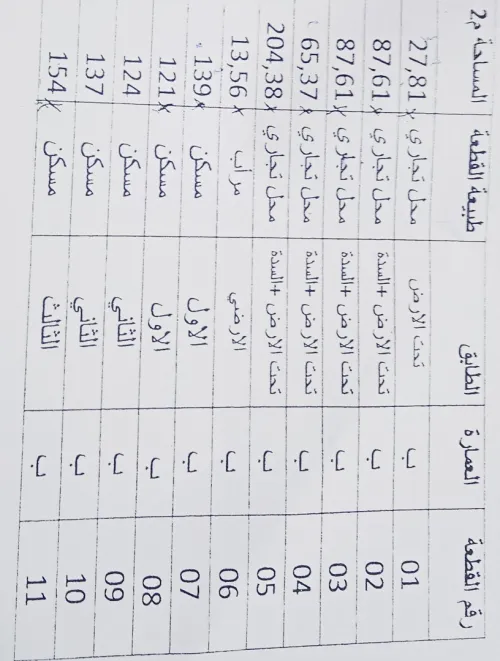 رقم القطعة العمارة الطابق طبيعة القطعة المساحة م2.
01 ب تحت الارض محل تجاري 27,81 x
02 ب تحت الارض +السدة محل تجاري 87,61 x
03 ب تحت الارض +السدة محل تجاري 87,61 x
04 ب تحت الارض +السدة محل تجاري 65,37 x
05 ب تحت الارض +السدة محل تجاري 204,38 x
06 ب الارضي مرآب 13,56 x
07 ب الاول مسكن 139 x
08 ب الاول مسكن 121 x
09 ب الثاني مسكن 124
10 ب الثاني مسكن 137
11 ب الثالث مسكن 154 x